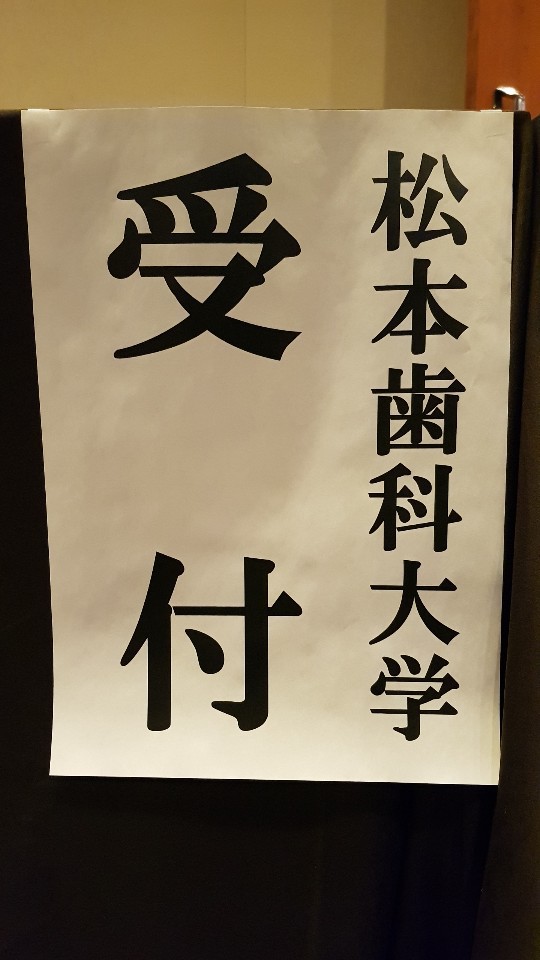 松本歯科大学
受付